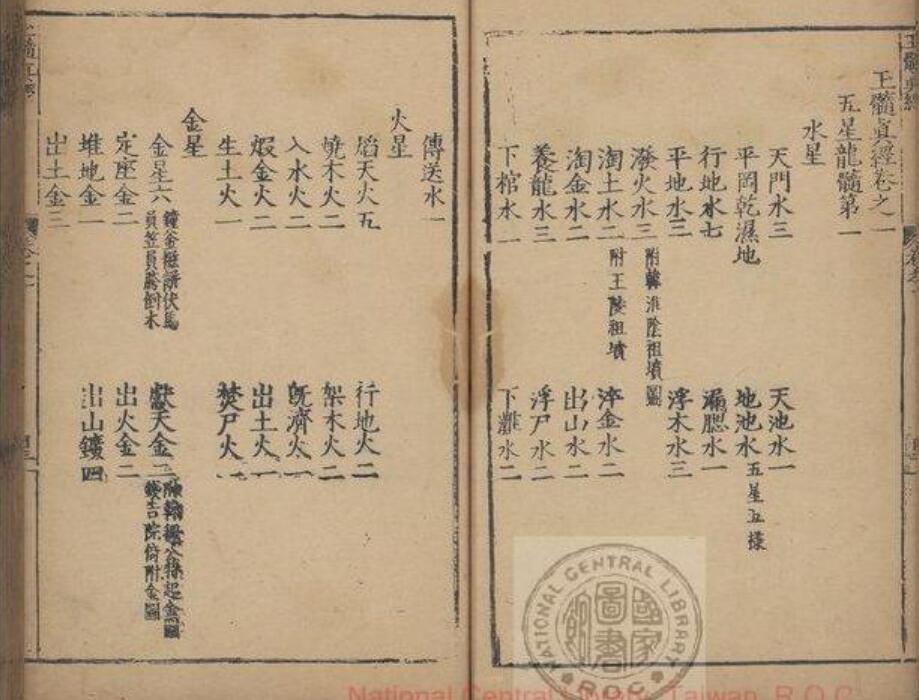 玉髓真經卷之一
五星龍髓第一
水星
天門水三
天池水一
平岡乾濕地
地池水五星五樣
行地水七
漏腮水一
平地水三
浮木水三
潑火水三附韓淮陰祖墳圖
淘土水二附王陵祖墳
淬金水二
淘金水二
出山水二
養龍水三
浮尸水二
下棺水一
下灘水二
傳送水一
火星
焰天火五
行地火二
燒木火二
架木火二
入水火二
既濟火一
煆金火二
出土火一
生土火一
焚尸火一
金星
金星六
獻天金二
定座金二
出火金二
堆地金一
出山鑛四
出土金三
NATIONAL CENTRAL LIBRARY
R.O.C.
國家圖書館
National Central Library, Taiwan, R.O.C.